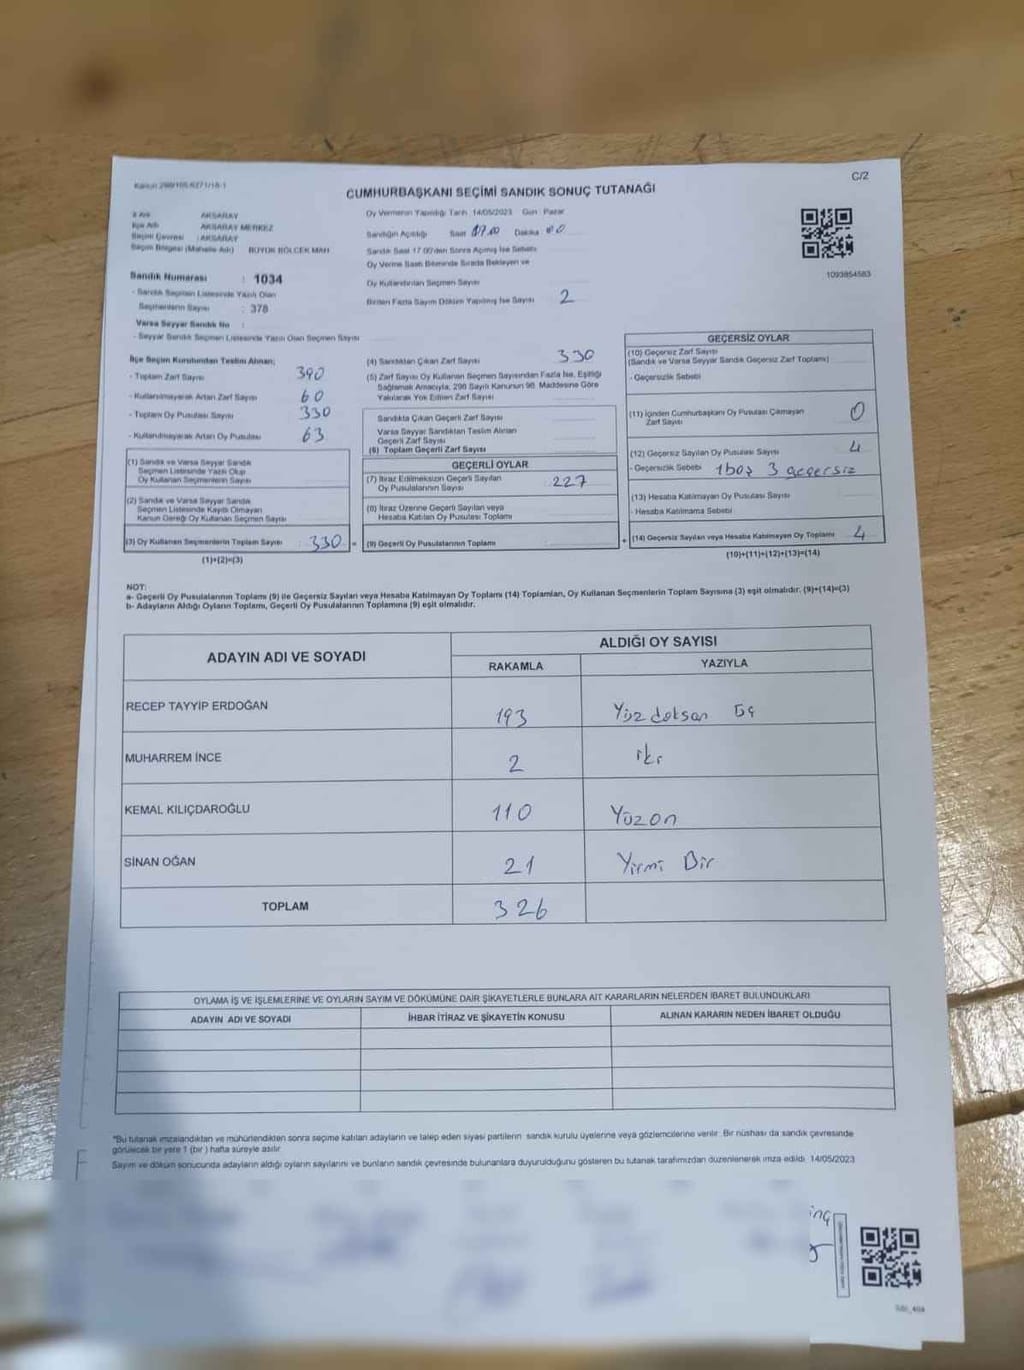 Kanun 298/105,6271/18-1
C/2
CUMHURBAŞKANI SEÇİMİ SANDIK SONUÇ TUTANAĞI
İl Adı AKSARAY
İlçe Adı AKSARAY MERKEZ
Seçim Çevresi : AKSARAY
Seçim Bölgesi (Mahalle Adı) BÜYÜK BÖLCEK MAH
Sandık Numarası : 1034
- Sandık Seçmen Listesinde Yazılı Olan
Seçmenlerin Sayısı : 378
Varsa Seyyar Sandık No :
- Seyyar Sandık Seçmen Listesinde Yazılı Olan Seçmen Sayısı
Oy Vermenin Yapıldığı Tarih 14/05/2023 Gün Pazar
Sandığın Açıldığı Saat 17.00 Dakika 00
Sandık Saat 17.00'den Sonra Açılmış İse Sebebi
Oy Verme Saati Bitiminde Sırada Bekleyen ve
Oy Kullandırılan Seçmen Sayısı
Birden Fazla Sayım Döküm Yapılmış İse Sayısı 2
1093854583
İlçe Seçim Kurulundan Teslim Alınan;
- Toplam Zarf Sayısı 390
- Kullanılmayarak Artan Zarf Sayısı 60
- Toplam Oy Pusulası Sayısı 330
- Kullanılmayarak Artan Oy Pusulası 63
(1) Sandık ve Varsa Seyyar Sandık
Seçmen Listesinde Yazılı Olup
Oy Kullanan Seçmenlerin Sayısı
(2) Sandık ve Varsa Seyyar Sandık
Seçmen Listesinde Kayıtlı Olmayan
Kanun Gereği Oy Kullanan Seçmen Sayısı
(3) Oy Kullanan Seçmenlerin Toplam Sayısı 330
(1)+(2)=(3)
(4) Sandıktan Çıkan Zarf Sayısı 330
(5) Zarf Sayısı Oy Kullanan Seçmen Sayısından Fazla İse, Eşitliği
Sağlamak Amacıyla, 298 Sayılı Kanunun 98. Maddesine Göre
Yakılarak Yok Edilen Zarf Sayısı
Sandıkta Çıkan Geçerli Zarf Sayısı
Varsa Seyyar Sandıktan Teslim Alınan
Geçerli Zarf Sayısı
(6) Toplam Geçerli Zarf Sayısı
GEÇERLİ OYLAR
(7) İtiraz Edilmeksizin Geçerli Sayılan
Oy Pusulalarının Sayısı 227
(8) İtiraz Üzerine Geçerli Sayılan veya
Hesaba Katılan Oy Pusulası Toplamı
= (9) Geçerli Oy Pusulalarının Toplamı
GEÇERSİZ OYLAR
(10) Geçersiz Zarf Sayısı
(Sandık ve Varsa Seyyar Sandık Geçersiz Zarf Toplamı)
- Geçersizlik Sebebi
(11) İçinden Cumhurbaşkanı Oy Pusulası Çıkmayan
Zarf Sayısı 0
(12) Geçersiz Sayılan Oy Pusulası Sayısı 4
- Geçersizlik Sebebi 1boş 3 geçersiz
(13) Hesaba Katılmayan Oy Pusulası Sayısı
- Hesaba Katılmama Sebebi
+ (14) Geçersiz Sayılan veya Hesaba Katılmayan Oy Toplamı 4
(10)+(11)+(12)+(13)=(14)
NOT:
a- Geçerli Oy Pusulalarının Toplamı (9) ile Geçersiz Sayılan veya Hesaba Katılmayan Oy Toplamı (14) Toplamları, Oy Kullanan Seçmenlerin Toplam Sayısına (3) eşit olmalıdır. (9)+(14)=(3)
b- Adayların Aldığı Oyların Toplamı, Geçerli Oy Pusulalarının Toplamına (9) eşit olmalıdır.
ADAYIN ADI VE SOYADI ALDIĞI OY SAYISI
RAKAMLA YAZIYLA
RECEP TAYYİP ERDOĞAN 193 Yüz doksan üç
MUHARREM İNCE 2 iki
KEMAL KILIÇDAROĞLU 110 Yüzon
SİNAN OĞAN 21 Yirmi Bir
TOPLAM 326
OYLAMA İŞ VE İŞLEMLERİNE VE OYLARIN SAYIM VE DÖKÜMÜNE DAİR ŞİKAYETLERLE BUNLARA AİT KARARLARIN NELERDEN İBARET BULUNDUKLARI
ADAYIN ADI VE SOYADI İHBAR İTİRAZ VE ŞİKAYETİN KONUSU ALINAN KARARIN NEDEN İBARET OLDUĞU
*Bu tutanak imzalandıktan ve mühürlendikten sonra seçime katılan adayların ve talep eden siyasi partilerin sandık kurulu üyelerine veya gözlemcilerine verilir. Bir nüshası da sandık çevresinde
görülecek bir yere 1 (bir) hafta süreyle asılır.
Sayım ve döküm sonucunda adayların aldığı oyların sayılarını ve bunların sandık çevresinde bulunanlara duyurulduğunu gösteren bu tutanak tarafımızdan düzenlenerek imza edildi. 14/05/2023